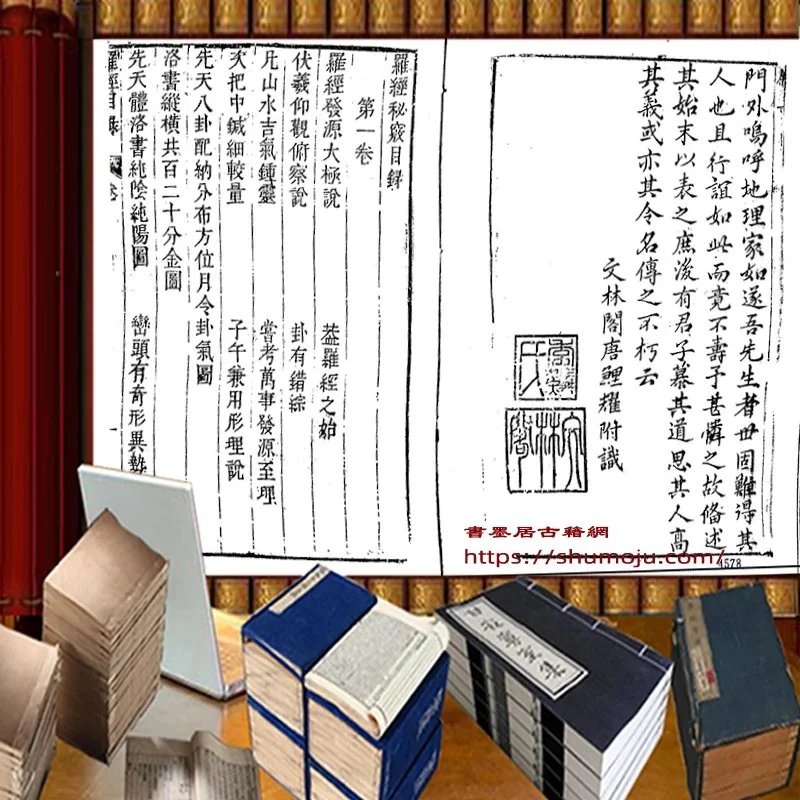 門外嗚呼地理家如遂吾先生者世固難得其
人也且行誼如此而竟不壽予甚憐之故偹述
其始末以表之庶後有君子慕其道思其人高
其義或亦其令名傳之不朽云
文林閣唐鯉耀附識
羅經秘竅目録
第一卷
羅經發源大極說 葢羅經之始
伏羲仰觀俯察說 卦有錯綜
凡山水吉氣鍾靈 嘗考萬事發源至理
次把中鍼細較量 子午兼用形理說
先天八卦配納分布方位月令卦氣圖
洛書縱橫共百二十分金圖
先天體洛書純陰純陽圖 巒頭有奇形異
羅經目録
書墨居古籍網
https://shumoju.com/
4578